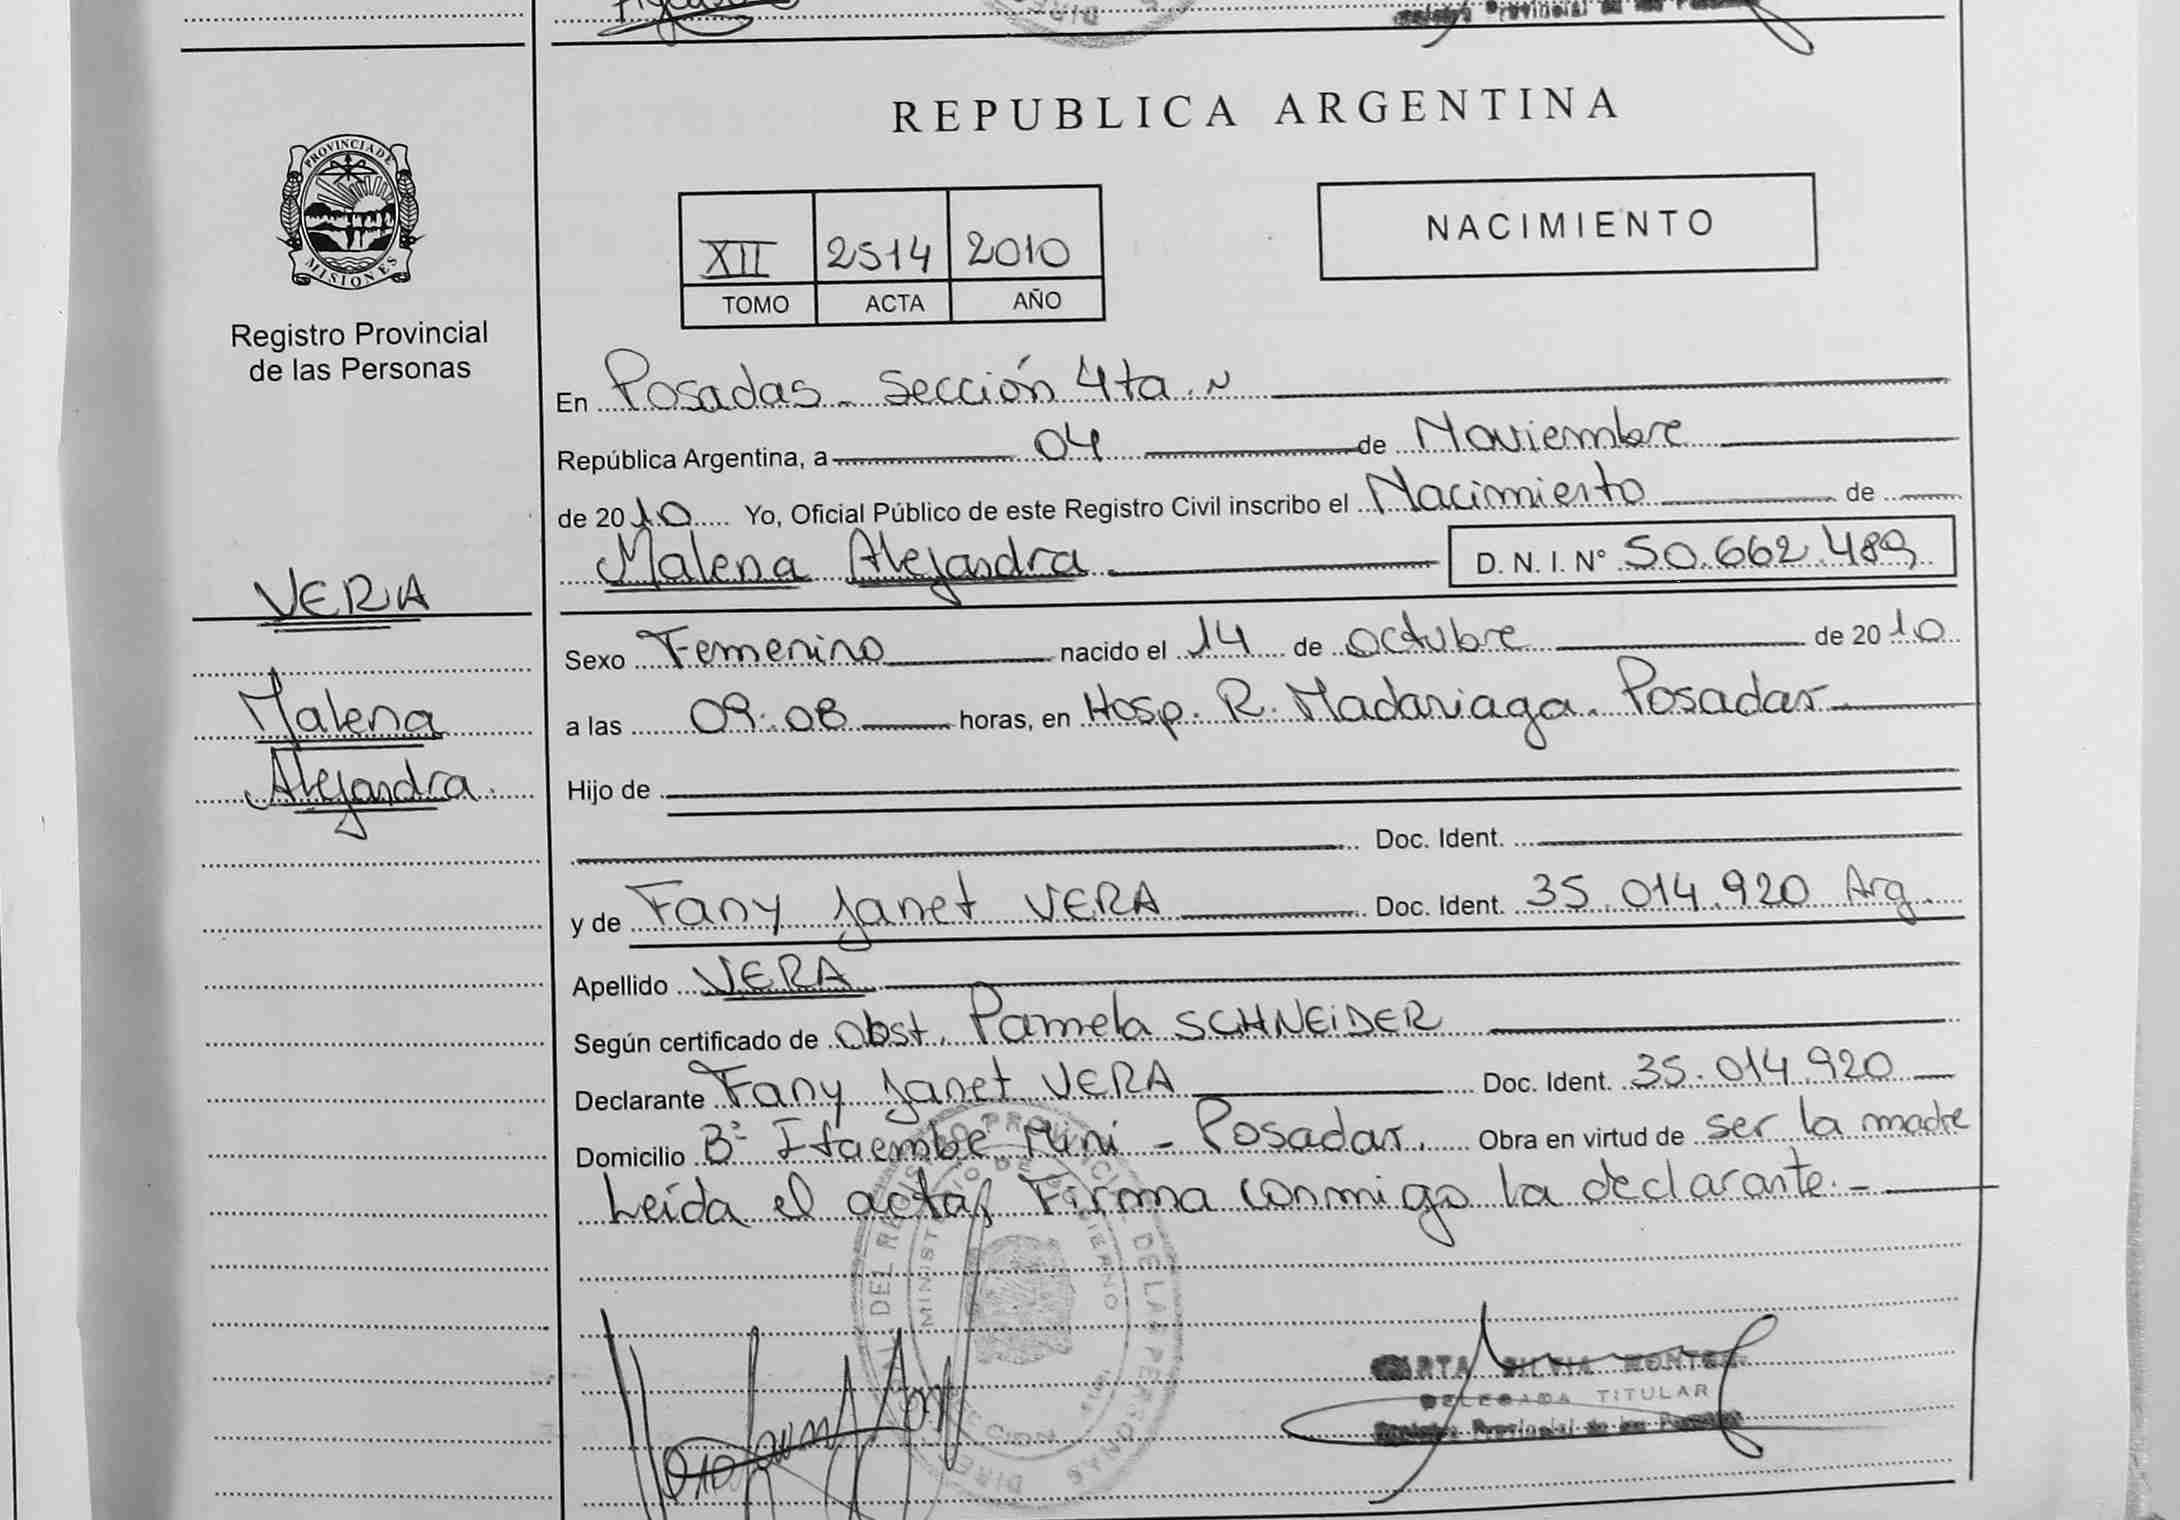 PROVINCIA DE
MISIONES
Registro Provincial
de las Personas
VERA
Malena
Alejandra.
REPUBLICA ARGENTINA
XII 2514 2010
TOMO ACTA AÑO
NACIMIENTO
En Posadas - Sección 4ta.
República Argentina, a 04 de Noviembre
de 2010 Yo, Oficial Público de este Registro Civil inscribo el Nacimiento de
Malena Alejandra D. N. I. N° 50.662.489
Sexo Femenino nacido el 14 de octubre de 2010
a las 09:08 horas, en Hosp. R. Madariaga. Posadas
Hijo de
Doc. Ident.
y de Fany Janet VERA Doc. Ident. 35.014.920 Arg.
Apellido VERA
Según certificado de Obst. Pamela SCHNEIDER
Declarante Fany Janet VERA Doc. Ident. 35.014.920
Domicilio B° Itaembe Mini - Posadas. Obra en virtud de ser la madre
Leída el acta, Firma conmigo la declarante.-
DELEGADA TITULAR
Registro Provincial de las Personas